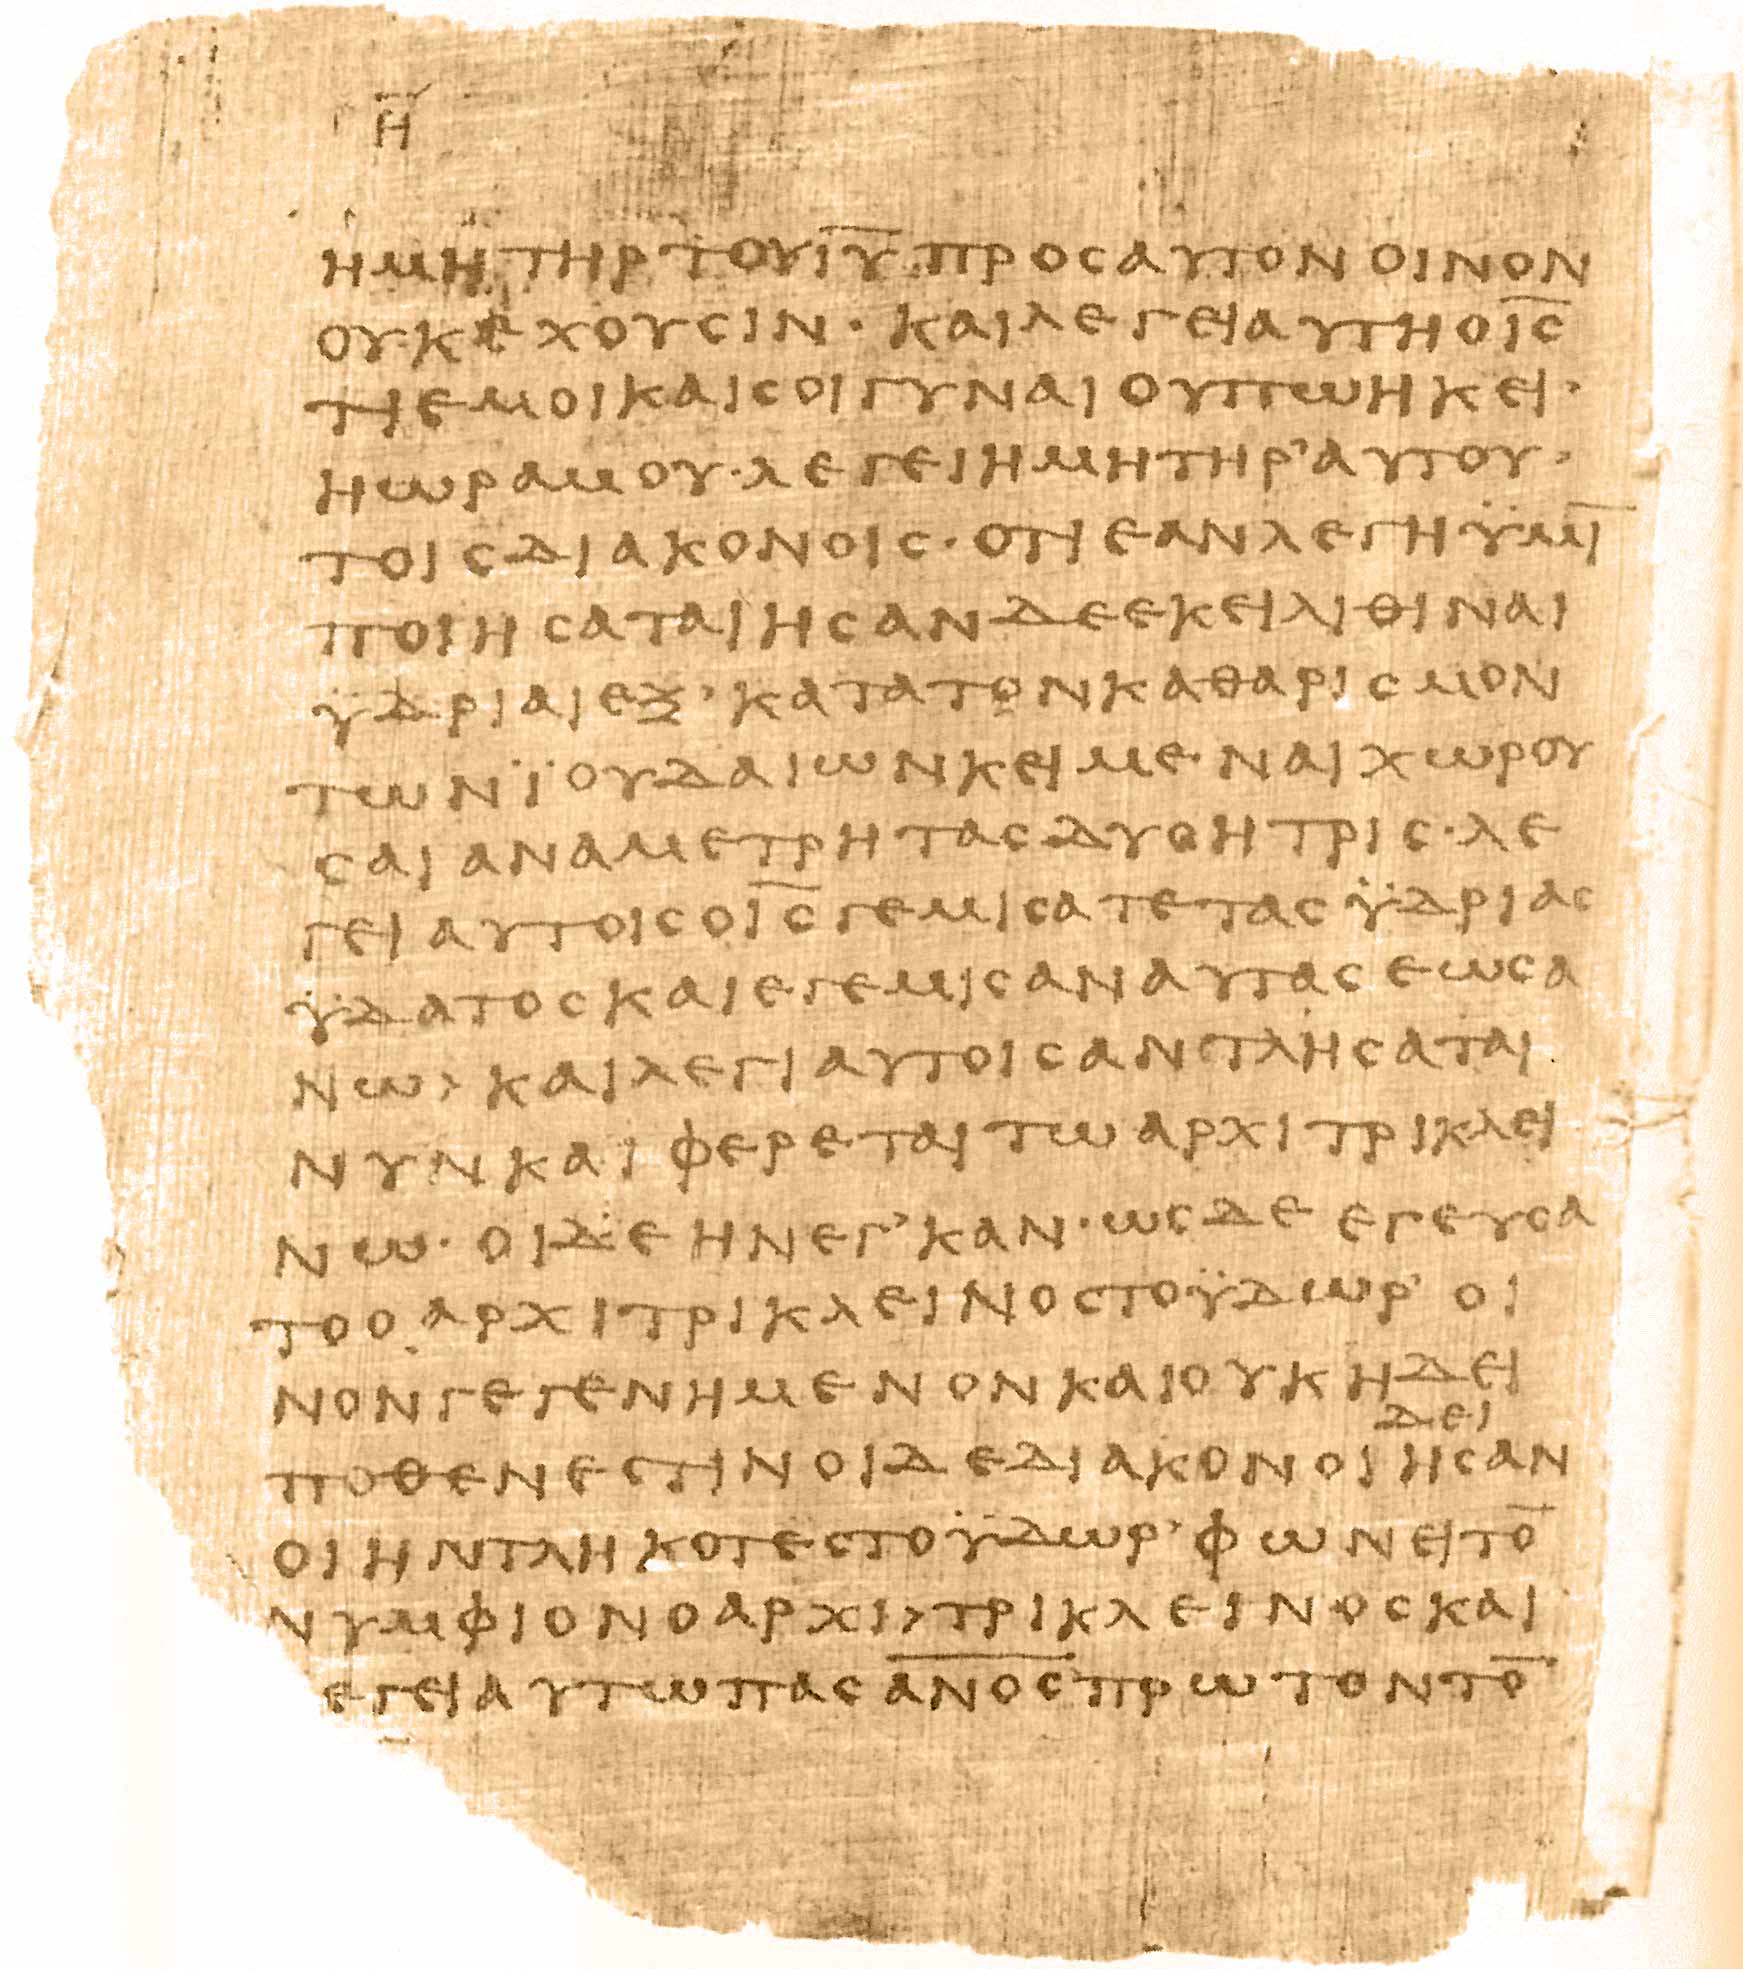 Η̅
ΗΜΗΤΗΡΤΟΥΙ̅Υ̅ΠΡΟϹΑΥΤΟΝΟΙΝΟΝ
ΟΥΚΕΧΟΥϹΙΝ·ΚΑΙΛΕΓΕΙΑΥΤΗΟΙ̅Ϲ̅
ΤΙΕΜΟΙΚΑΙϹΟΙΓΥΝΑΙΟΥΠΩΗΚΕΙ·
ΗΩΡΑΜΟΥ·ΛΕΓΕΙΗΜΗΤΗΡ’ΑΥΤΟΥ·
ΤΟΙϹΔΙΑΚΟΝΟΙϹ·ΟΤΙΕΑΝΛΕΓΗΫΜΙ̅
ΠΟΙΗϹΑΤΑΙΗϹΑΝΔΕΕΚΕΙΛΙΘΙΝΑΙ
ΫΔΡΙΑΙΕΞ’ΚΑΤΑΤΟΝΚΑΘΑΡΙϹΜΟΝ
ΤΩΝΪΟΥΔΑΙΩΝΚΕΙΜΕΝΑΙΧΩΡΟΥ
ϹΑΙΑΝΑΜΕΤΡΗΤΑϹΔΥΟΗΤΡΙϹ·ΛΕ
ΓΕΙΑΥΤΟΙϹΟΙ̅Ϲ̅ΓΕΜΙϹΑΤΕΤΑϹΫΔΡΙΑϹ
ΫΔΑΤΟϹΚΑΙΕΓΕΜΙϹΑΝΑΥΤΑϹΕΩϹΑ
ΝΩ›ΚΑΙΛΕΓΙΑΥΤΟΙϹΑΝΤΛΗϹΑΤΑΙ
ΝΥΝΚΑΙΦΕΡΕΤΑΙΤΩΑΡΧΙΤΡΙΚΛΕΙ
ΝΩ·ΟΙΔΕΗΝΕΓ’ΚΑΝ·ΩϹΔΕΕΓΕΥϹΑ
ΤΟΟΑΡΧΙΤΡΙΚΛΕΙΝΟϹΤΟΫΔΩΡ’ΟΙ
ΝΟΝΓΕΓΕΝΗΜΕΝΟΝΚΑΙΟΥΚΗΔΕΙ
ΔΕΙ
ΠΟΘΕΝΕϹΤΙΝΟΙΔΕΔΙΑΚΟΝΟΙΗϹΑΝ
ΟΙΗΝΤΛΗΚΟΤΕϹΤΟΫΔΩΡ’ΦΩΝΕΙΤΟ̅
ΝΥΜΦΙΟΝΟΑΡΧΙ›ΤΡΙΚΛΕΙΝΟϹΚΑΙ
ΕΓΕΙΑΥΤΩΠΑϹΑ̅Ν̅Ο̅Ϲ̅ΠΡΩΤΟΝΤΟ̅